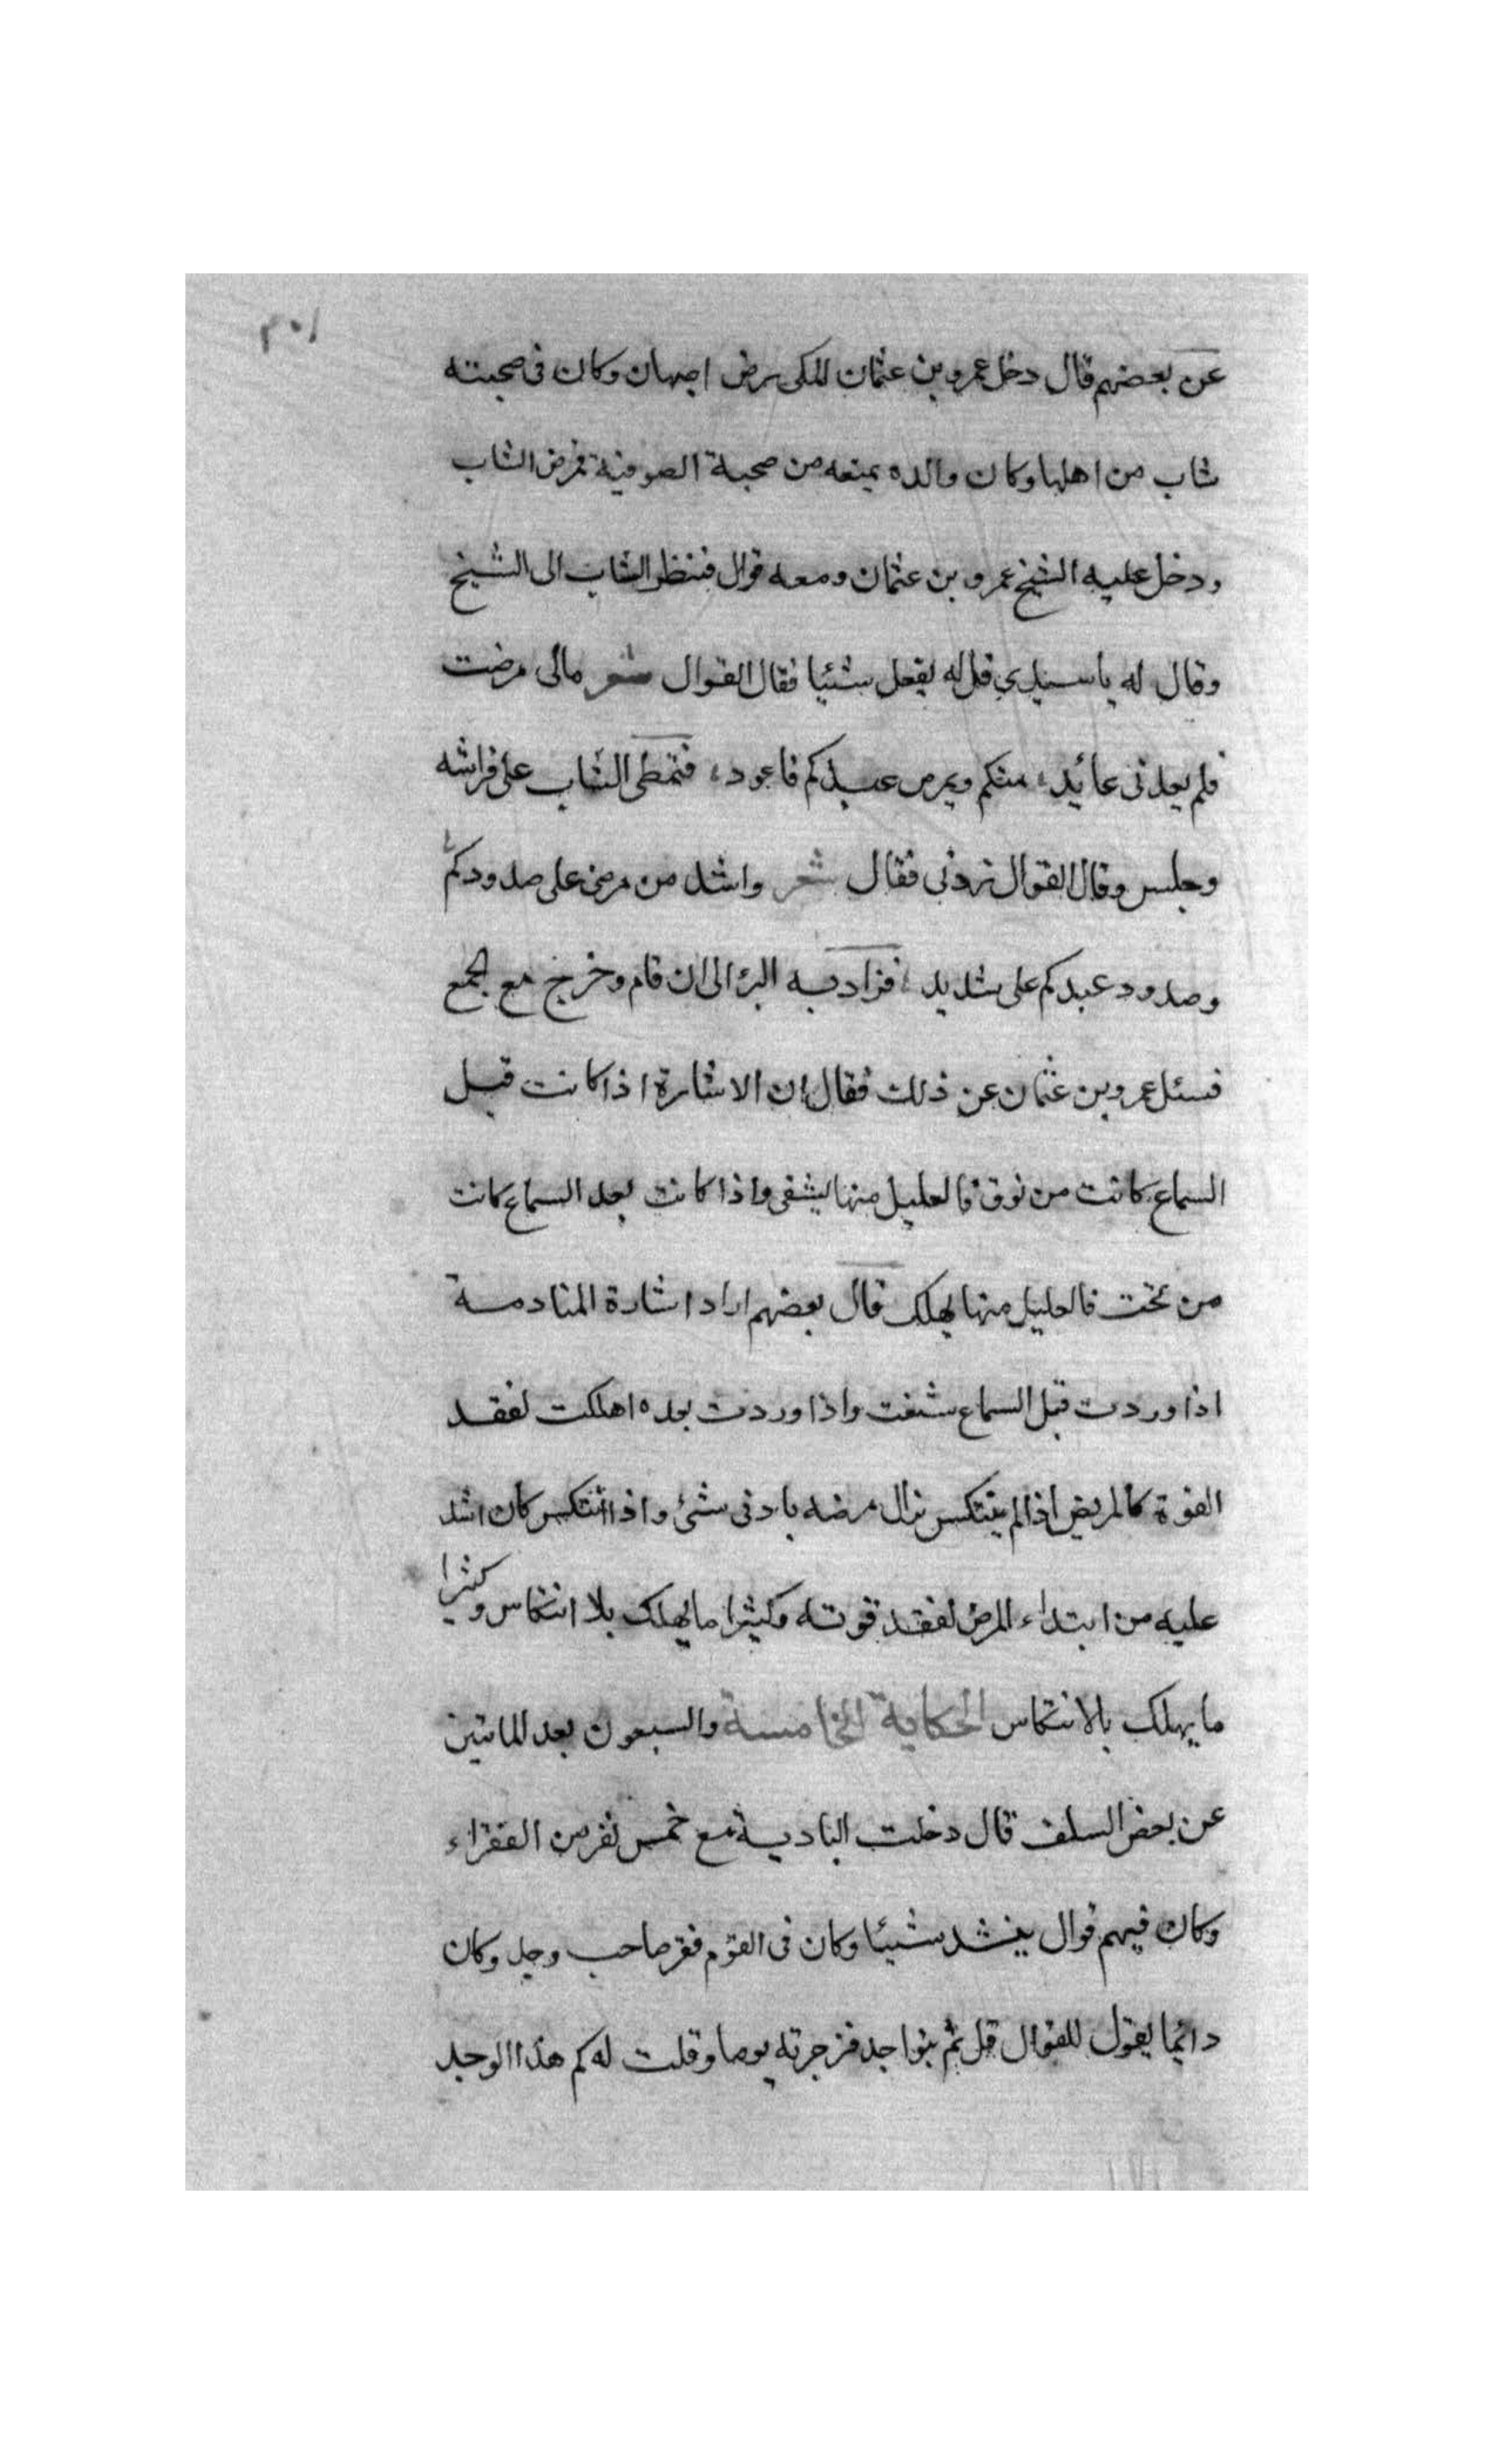 عن بعضهم قال دخل عمرو بن عثمان المكى رض اصبهان وكان فى صحبته
شاب من اهلها وكان والده يمنعه من صحبة الصوفية فمرض الشاب
ودخل عليه الشيخ عمرو بن عثمان ومعه قوال فنظر الشاب الى الشيخ
وقال له يا سيدي قل له يقول شيئا فقال القوال شعر مالى مرضت
فلم يعدنى عائد، منكم ويمرض عبدكم فاعود، فتمطى الشاب على فراشه
وجلس وقال القوال زدنى فقال شعر واشد من مرضى على صدودكم
وصدود عبدكم على شديد، فزاد به البرء الى ان قام وخرج مع الجمع
فسئل عمرو بن عثمان عن ذلك فقال ان الاشارة اذا كانت قبل
السماع كانت من فوق فالعليل منها يشفى واذا كانت بعد السماع كانت
من تحت فالعليل منها يهلك قال بعضهم اراد اشارة المنادمة
اذا وردت قبل السماع شفت واذا وردت بعده اهلكت لفقد
القوة كالمريض اذا لم ينتكس يزال مرضه بادنى شئ واذا انتكس كان اشد
عليه من ابتداء المرض لفقد قوته وكثيرا ما يهلك بلا انتكاس وكثيرا
ما يهلك بالانتكاس الحكاية الخامسة والسبعون بعد المائتين
عن بعض السلف قال دخلت البادية مع خمس نفر من الفقراء
وكان فيهم قوال ينشد شيئا وكان فى القوم فقر صاحب وجد وكان
دائما يقول للقوال قل ثم يتواجد فزجرته يوما وقلت له كم هذا الوجد